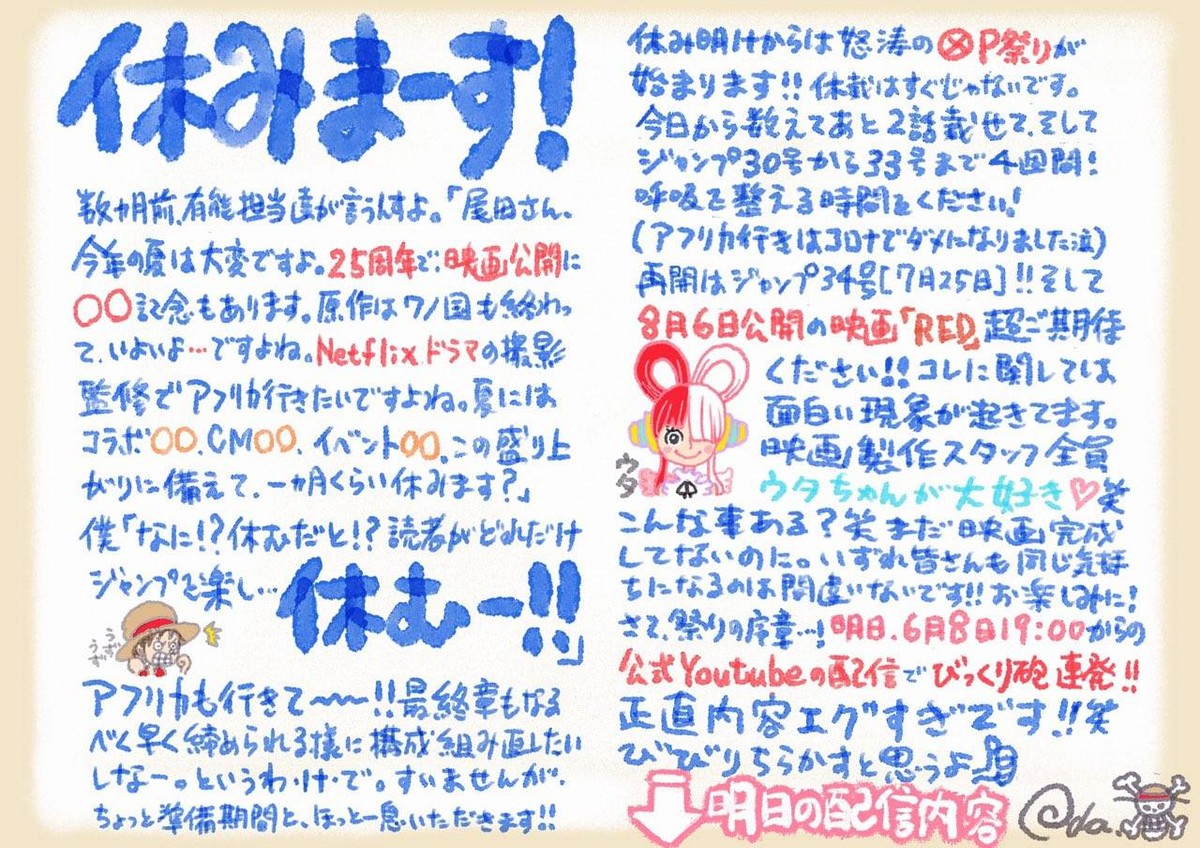 休みまーす!
数ヵ月前、有能担当達が言うんすよ。「尾田さん、
今年の夏は大変ですよ。25周年で、映画公開に
〇〇記念もあります。原作はワノ国も終わっ
て、いよいよ…ですよね。Netflixドラマの撮影
監修でアフリカ行きたいですよね。夏には
コラボ〇〇、CM〇〇、イベント〇〇。この盛り上
がりに備えて、一ヵ月くらい休みます?」
僕「なに!?休むだと!?読者がどれだけ
ジャンプを楽し…休むー!!」
うずうず
アフリカも行きて〜〜!!最終章もなる
べく早く締められる様に構成組み直したい
しなー。というわ・け・で。すいませんが、
ちょっと準備期間と、ほっと一息いただきます!!
休み明けからは怒涛のⓍP祭りが
始まります!!休載はすぐじゃないです。
今日から数えてあと2話載せて、そして
ジャンプ30号から33号まで4週間!
呼吸を整える時間をください!
(アフリカ行きはコロナでダメになりました泣)
再開はジャンプ34号[7月25日]!!そして
8月6日公開の映画「RED」超ご期待
ください!!コレに関しては
面白い現象が起きてます。
映画製作スタッフ全員
ウタ
ウタちゃんが大好き♡笑
こんな事ある?笑 まだ映画完成
してないのに。いずれ皆さんも同じ気持
ちになるのは間違いないです!!お楽しみに!
さて、祭りの序章…!明日、6月8日19:00からの
公式Youtubeの配信でびっくり砲連発!!
正直内容エグすぎです!!笑
びびりちらかすと思うよ
明日の配信内容
Oda.